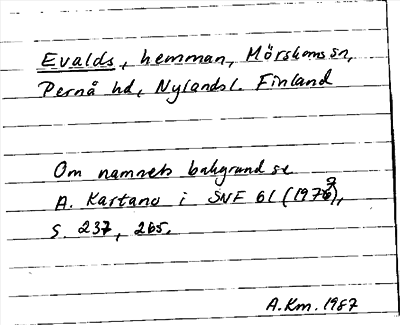 Evalds, hemman, Mörskoms sn,
Pernå hd, Nylands l. Finland
Om namnets bakgrund se
A. Kartano i SNF 61 (1979),
s. 237, 265.
A.Km. 1987